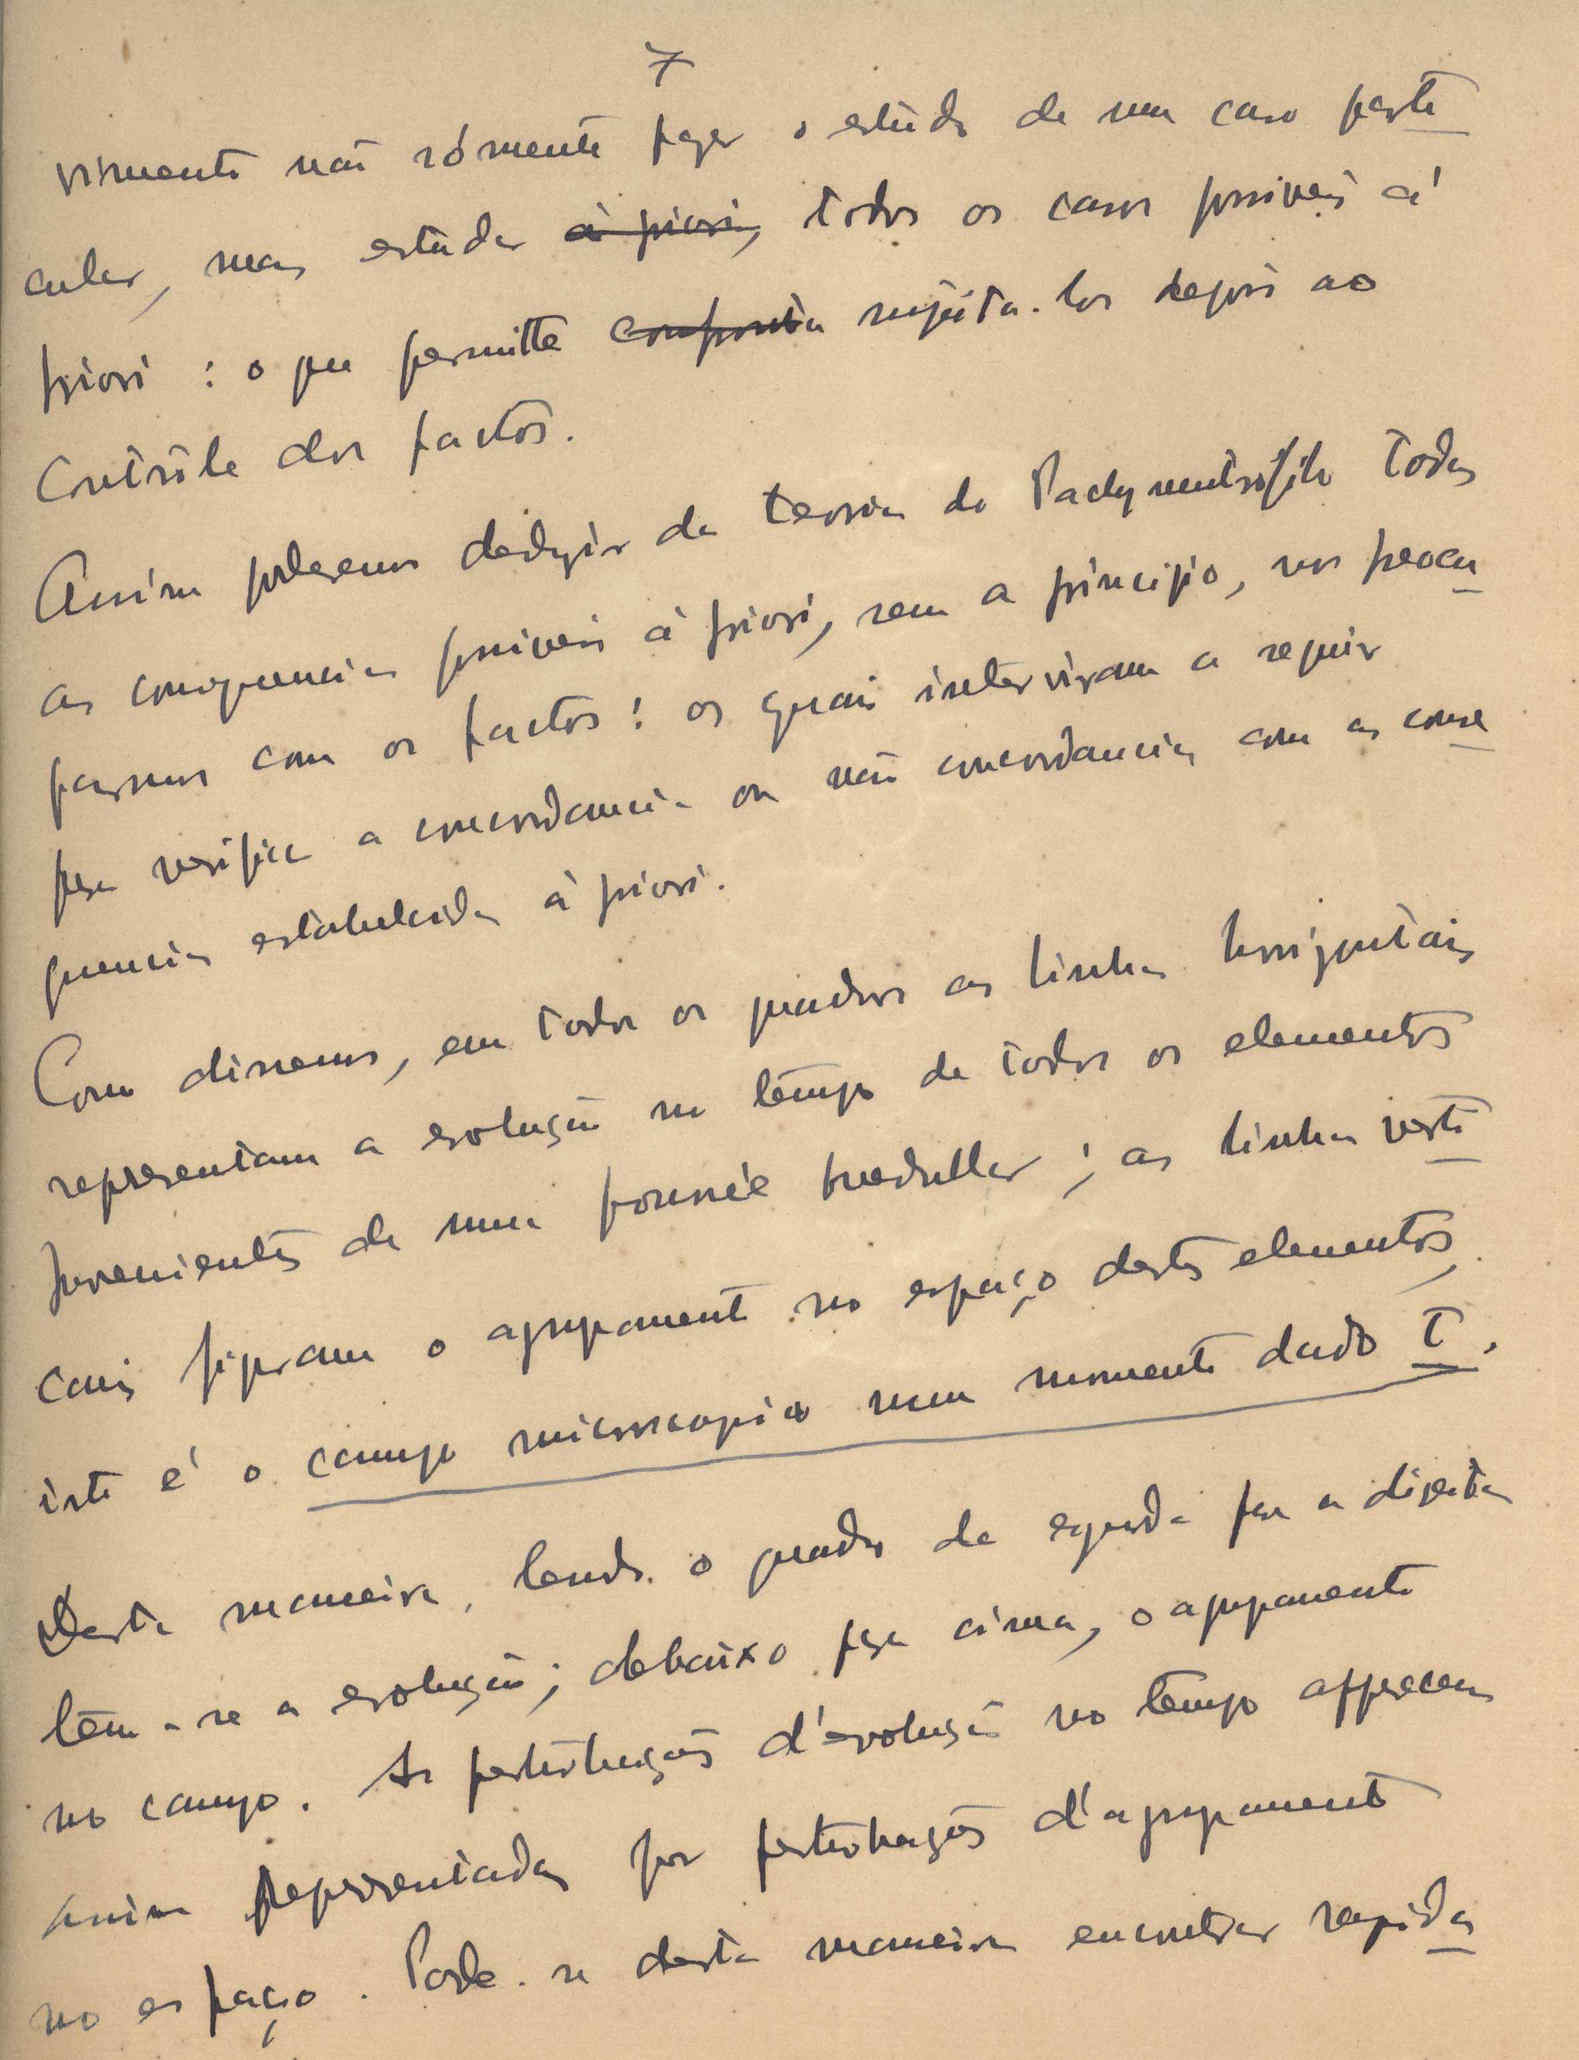 7
vimento não sómente fazer o estudo de um caso parti
cular, mas estudar à priori, todos os casos possiveis à
priori : o que permitte sujeita-los depois ao
Contrôle dos factos.
Assim poderemos deduzir da teoria do todas
as consequencias possiveis à priori, sem a principio, nos preocu
parmos com os factos: os quais interviram a seguir
para verificar a concordancia ou não concordancia com as conse
quencias estabelecidas à priori.
Como dissemos, em todos os quadros as linhas horizontais
representam a evolução no tempo de todos os elementos
provenientes de uma poussée medullar; as linhas verti
cais figuram o agrupamento no espaço destes elementos,
isto é o campo microscopico num momento dado T.
Desta maneira, lendo o quadro da esquerda para a direita
lêm-se a evolução; debaixo para cima, o agrupamento
no campo. As perturbações d'evolução no tempo apparecem
assim representadas por perturbações d'agrupamento
no espaço. Pode-se desta maneira encontrar rapida